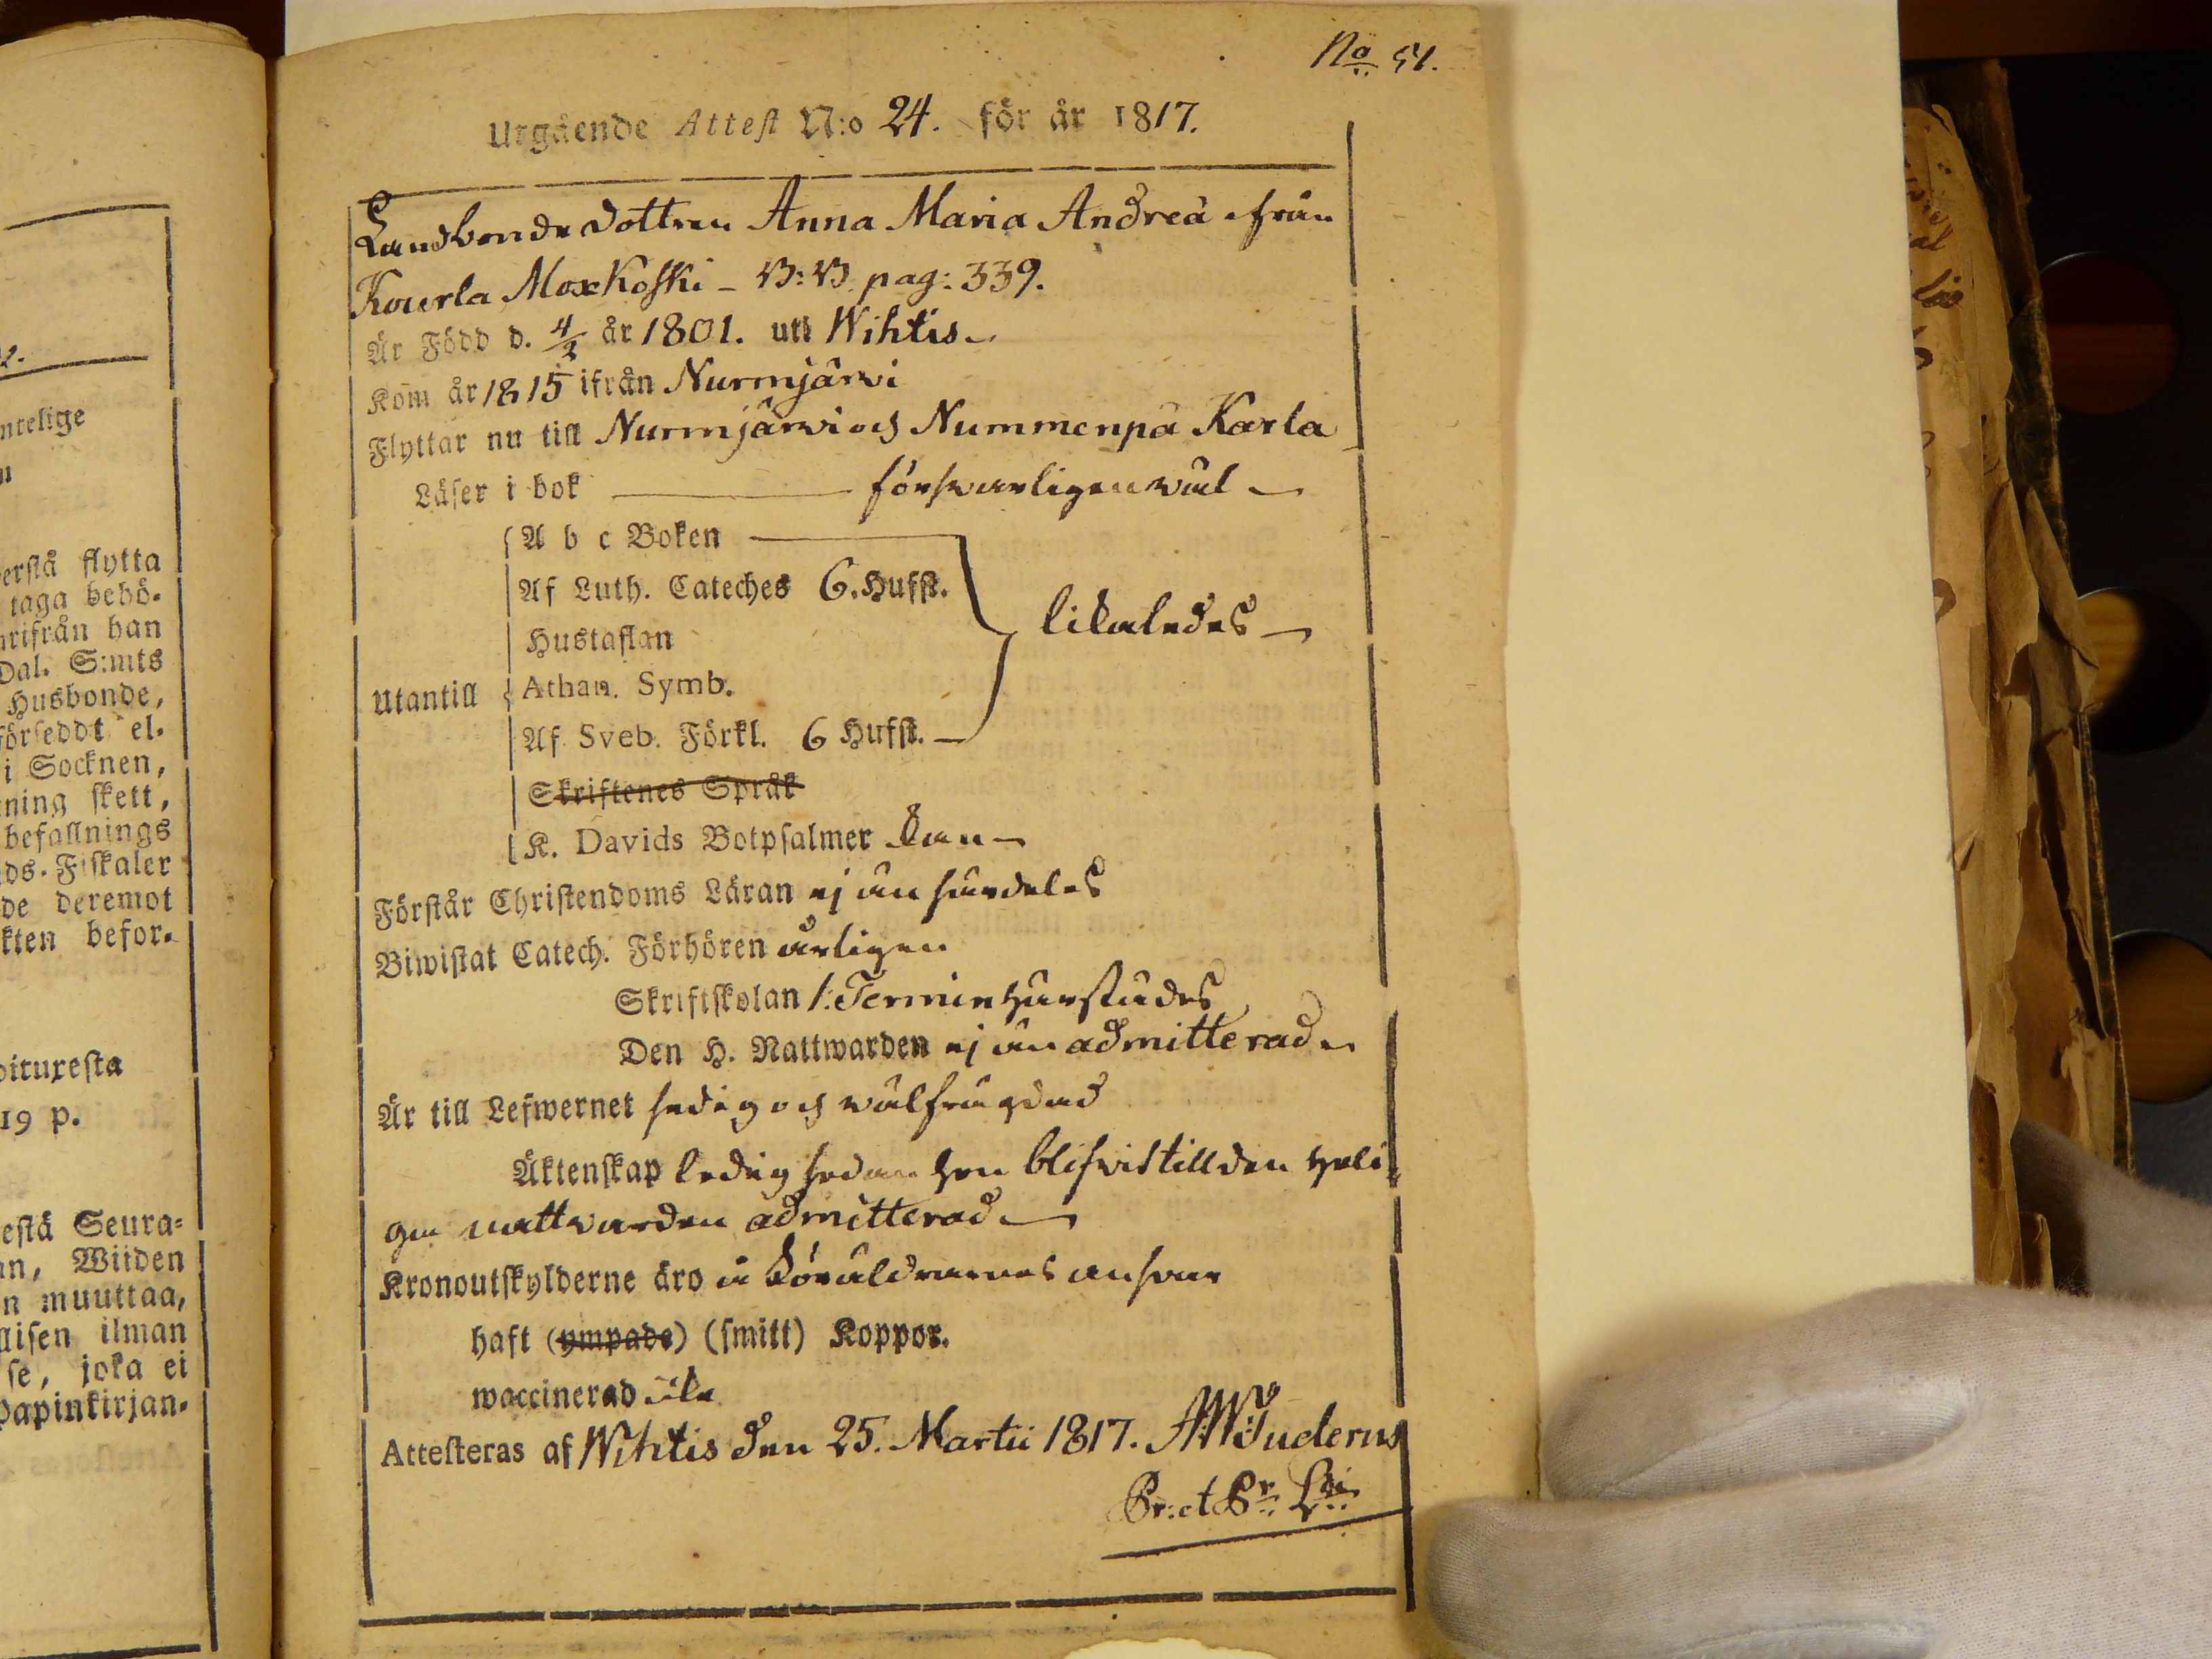 No 51.
Utgående Attest N:o 24. för år 1817.
Landbonde dottren Anna Maria Andreä från
Kourla Moxkoski - B: B. pag: 339.
Är Född d. 4/2 år 1801. uti Wihtis
Kom år 1815 ifrån Nurmjärwi
Flyttar nu till Nurmjärwi och Nummenpä Karla
Läser i bok försvarligen wäl
A b c Boken
Af Luth. Cateches 6. Hufst.
Hustaflan
likaledes
Utantill
Athan. Symb.
Af Sveb. Förkl. 6 Hufst.
Skriftenes Språk
K. Davids Botpsalmer kan
Förstår Christendoms Läran ej än särdeles
Biwistat Catech. Förhören årligen
Skriftskolan 1. Termin härstädes
Den H. Nattwarden ej än admitterad
Är till Lefwernet sedig och wälfrägdad
Äktenskap ledig sedan hon blifvit till den heli
gen nattvarden admitterad
Kronoutskylderne äro å Föräldrarnes ansvar
haft (ympade) (smitt) Koppor.
waccinerad icke
Attesteras af Wihtis den 25. Martii 1817.
ntelige
n
erstå flytta
taga behö-
rifrån han
Dal. S:mts
Husbonde,
förseddt el-
i Socknen,
ning skett,
befallnings
ds. Fiskaler
de deremot
kten befor-
oituxesta
19 p.
estä Seura-
an, Wiiden
n muuttaa,
llisen ilman
se, joka ei
papinkirjan-